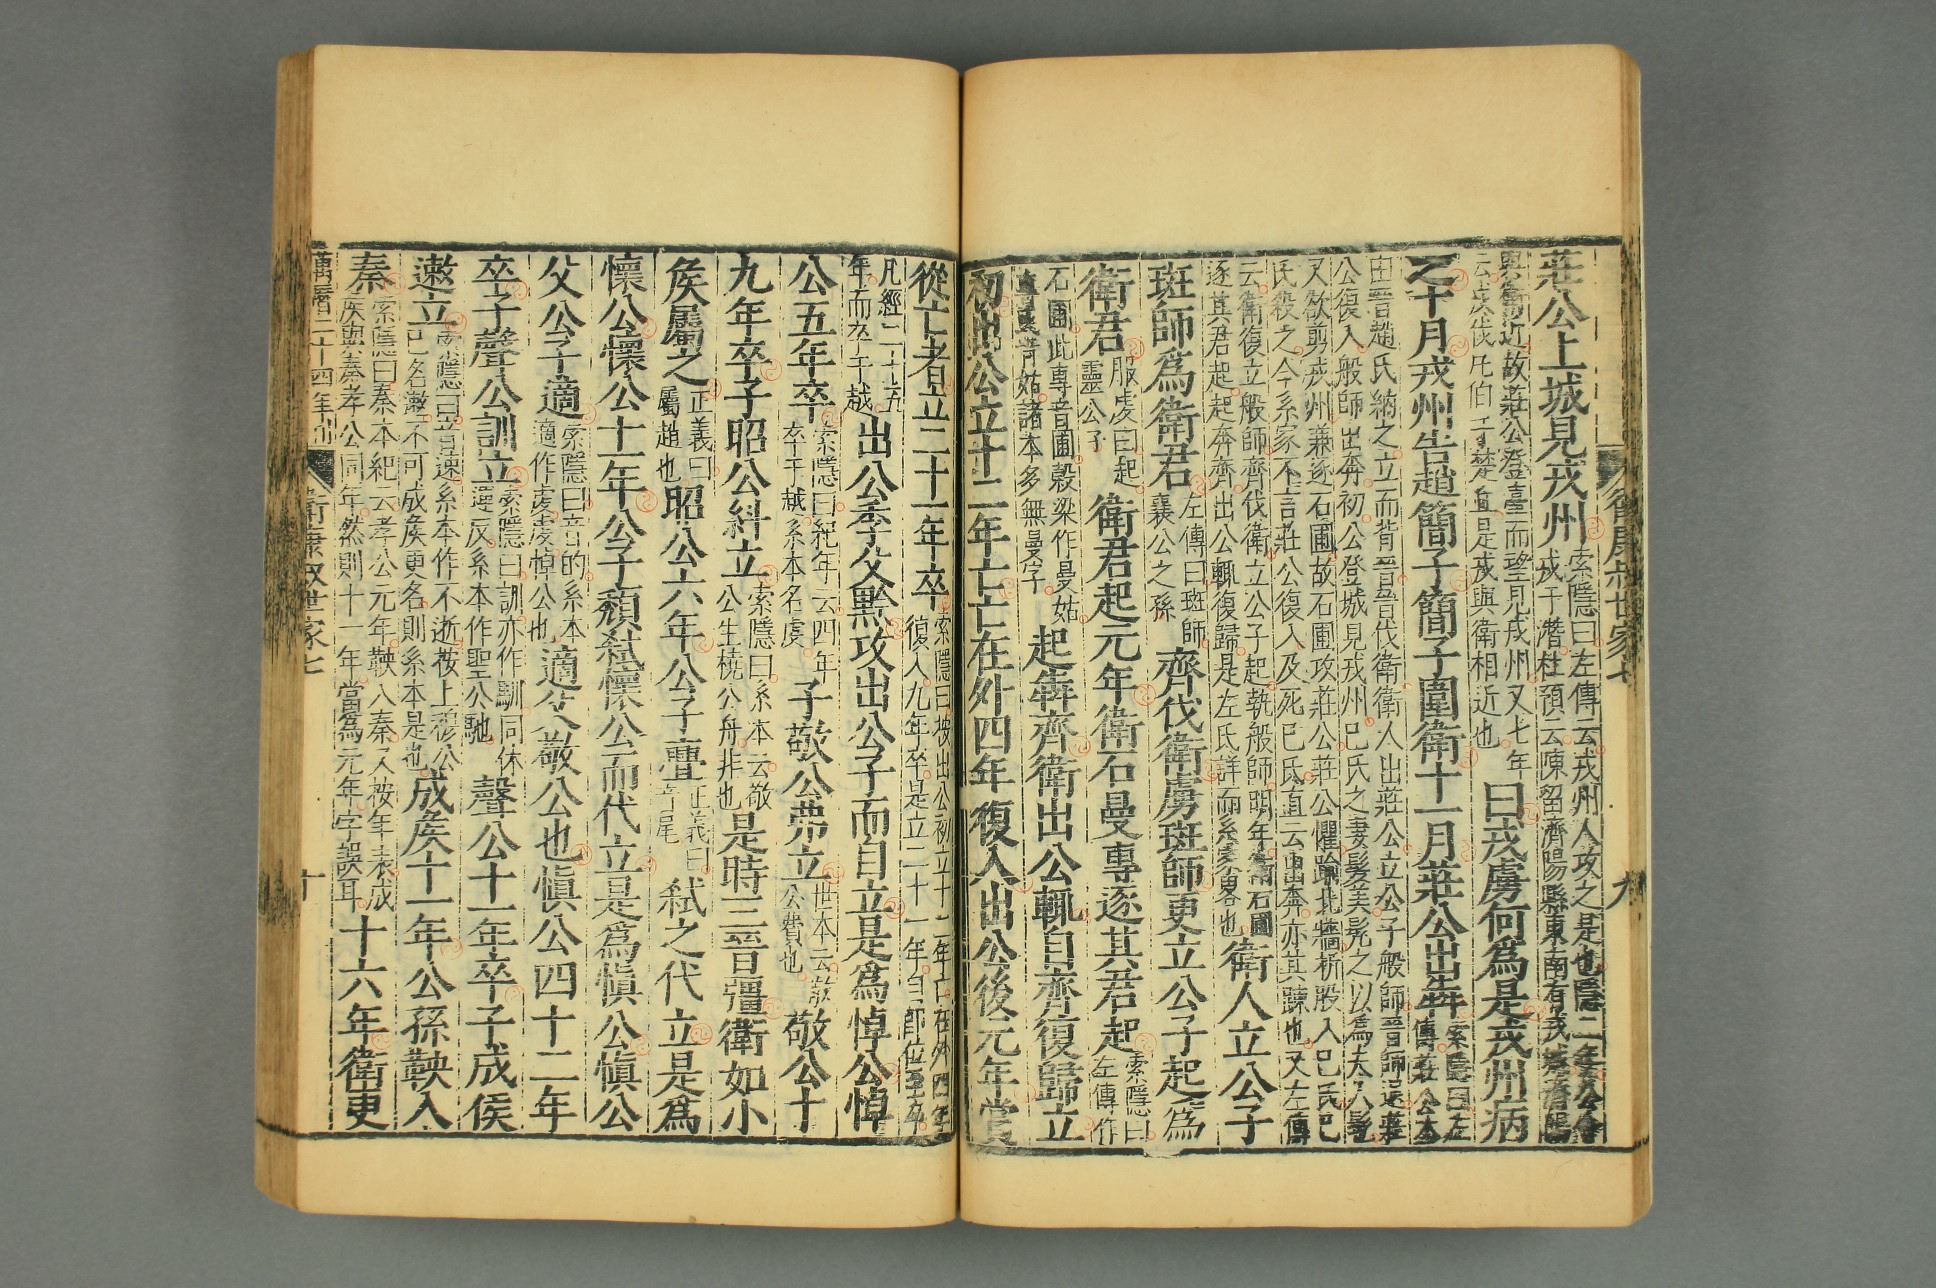 莊公上城見戎州索隱曰左傳云戎州人攻之是也隱二年公會
戎于潛杜預云陳留濟陽縣東南有戎城濟陽
與衛近故莊公登臺而望見戎州又七年
云戎伐凡伯于楚丘是戎與衛相近也曰戎虜何為是戎州病
之十月戎州告趙簡子簡子圍衛十一月莊公出奔索隱曰左
傳莊公本
由晉趙氏納之立而背晉晉伐衛衛人出莊公立公子般師晉師退莊
公復入般師出奔初公登城見戎州巳氏之妻髮美髡之以為夫人髢
又欲剪戎州兼逐石圃故石圃攻莊公莊公懼踰北牆折股入巳氏巳
氏殺之今系家不言莊公復入及死巳氏直云出奔亦其疎也又左傳
云衛復立般師齊伐衛立公子起執般師明年衛石圃
逐其君起起奔齊出公輒復歸是左氏詳而系家畧也衛人立公子
斑師為衛君左傳曰斑師
襄公之孫齊伐衛虜斑師更立公子起為
衛君服虔曰起
靈公子衛君起元年衛石曼專逐其君起索隱曰
左傳作
石圃此專音圃穀梁作曼姑
諸本多無曼字起奔齊衛出公輒自齊復歸立
初出公立十二年亡亡在外四年復入出公後元年賞
從亡者立二十一年卒索隱曰按出公初立十二年亡在外四年
復入九年卒是立二十一年自即位至卒
凡經二十五
年而卒于越出公季父黔攻出公子而自立是為悼公悼
公五年卒索隱曰紀年云四年
卒于越系本名虔子敬公弗立世本云敬
公費也敬公十
九年卒子昭公糾立索隱曰系本云敬
公生橈公舟非也是時三晉彊衛如小
侯屬之正義曰
屬趙也昭公六年公子亹正義曰
弒之代立是為
懷公懷公十一年公子頹弒懷公而代立是為慎公慎公
父公子適索隱曰音的系本
適作虔虔悼公也適父敬公也慎公四十二年
卒子聲公訓立索隱曰訓亦作馴同休
運反系本作聖公馳聲公十一年卒子成侯
遫立索隱曰音速系本作不逝按上穆公
已名遫不可成侯更名則系本是也成侯十一年公孫鞅入
秦索隱曰秦本紀云孝公元年鞅入秦又按年表成
侯與秦孝公同年然則十一年當為元年字誤耳十六年衛更
衛康叔世家七
九
萬曆二十四年刊
衛康叔世家七
十